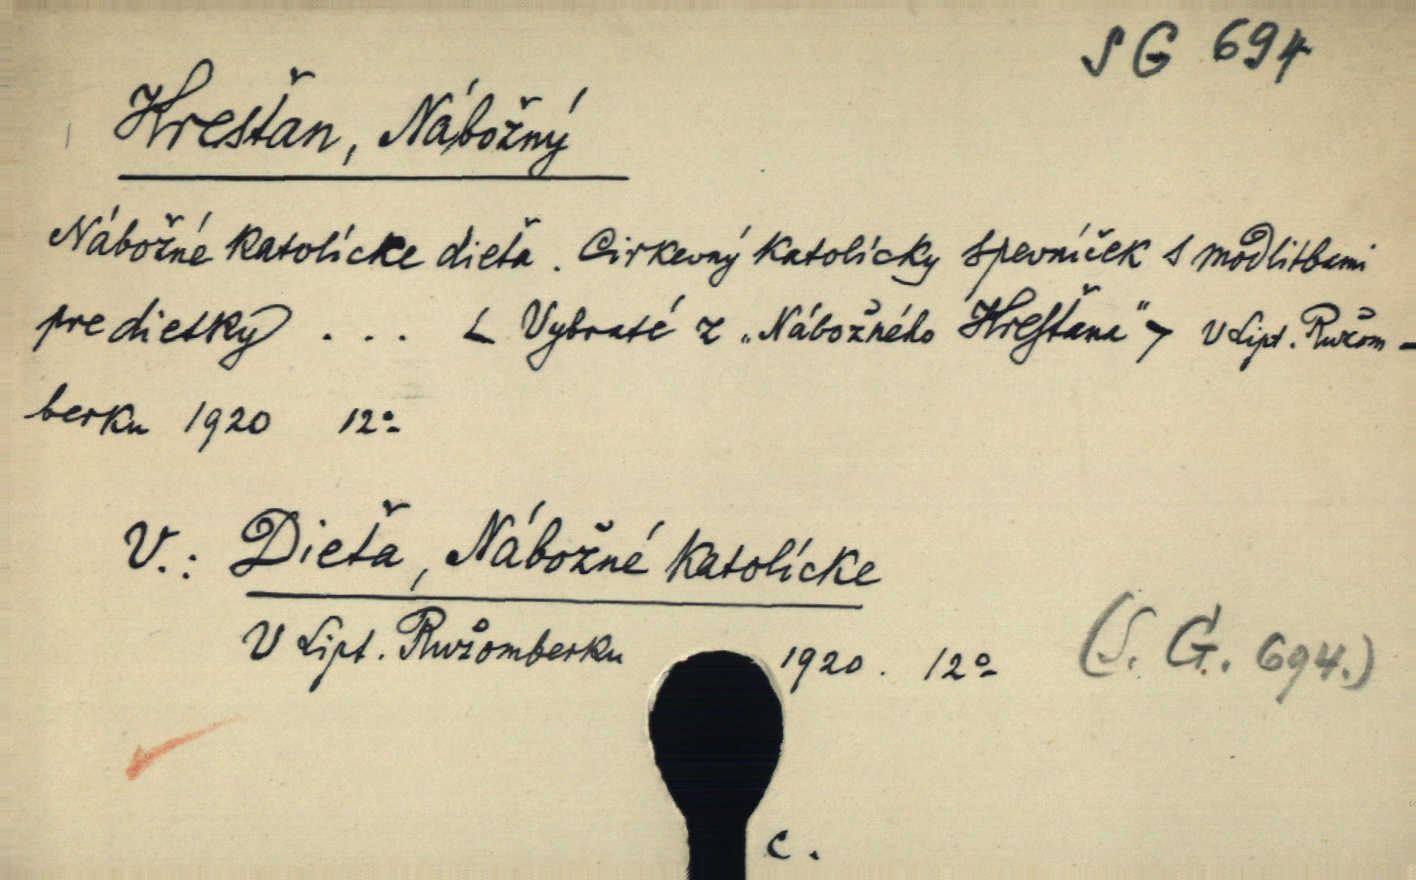 SG 694
Kresťan, Nábožný
Nábožné katolícke dieťa. Cirkevný katolícky spevníček s modlitbami
pre dietky ... < Vybraté z „Nábožného Kresťana" > V Lipt. Ružom-
berku 1920 12º
V.: Dieťa, Nábožné katolícke
V Lipt. Ružomberku 1920. 12º (S. G. 694.)
c.